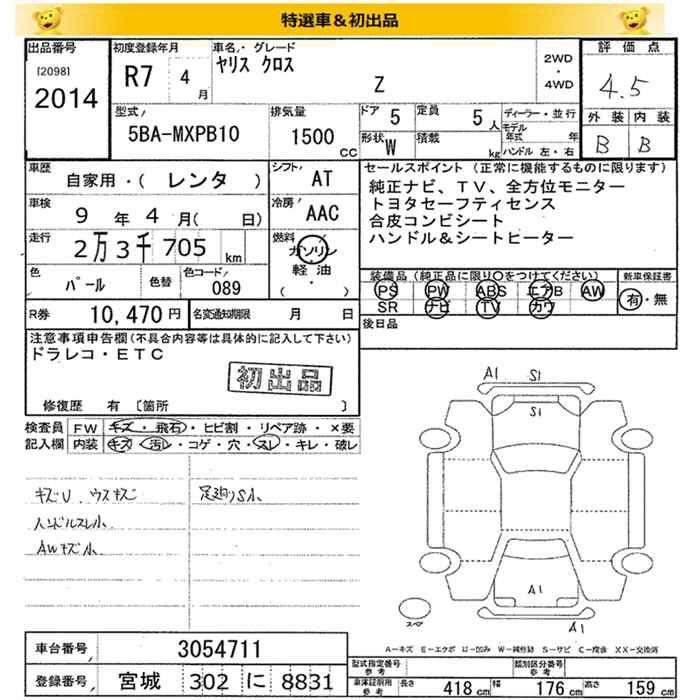 特選車＆初出品
出品番号
[2098]
2014
初度登録年月
R7 4 月
車名・グレード
ヤリス クロス
Z
2WD
・
4WD
評価点
4.5
外装 内装
B B
型式
5BA-MXPB10
排気量
1500 CC
ドア 5
定員 5 人
形状 W
積載 kg
ディーラー・並行
モデル年式 年
ハンドル 左・右
車歴
自家用・( レンタ )
シフト
AT
車検
9 年 4 月( 日)
冷房
AAC
走行
2万3千705 km
燃料
ガソリン
軽油
( ・ )
色
パール
色替
色コード
089
R券 10,470 円
名変通知期限 月 日
セールスポイント (正常に機能するものに限ります)
純正ナビ、TV、全方位モニター
トヨタセーフティセンス
合皮コンビシート
ハンドル＆シートヒーター
装備品(純正品に限り〇をつけてください)
PS PW ABS エアB AW
SR ナビ TV カワ
新車保証書
有・無
後日品
注意事項申告欄(不具合内容等は具体的に記入して下さい)
ドラレコ・ETC
初出品
修復歴 有 [箇所 ]
検査員 FW キズ・飛石・ヒビ割・リペア跡・×要
記入欄 内装 キズ・汚レ・コゲ・穴・スレ・キレ・破レ
キズU、ウスキズ
ハンドルスレ小
AWキズ小
足廻りS小
A1 S1
S1
A1
A1
スペア
A－キズ E－エクボ U－凹み W－補修跡 S－サビ C－腐食 XX－交換済
車台番号 3054711
登録番号 宮城 302 に 8831
型式指定番号 参考
類別区分番号 参考
車体証明用 参考
長さ 418 cm 幅 176 cm 高さ 159 cm